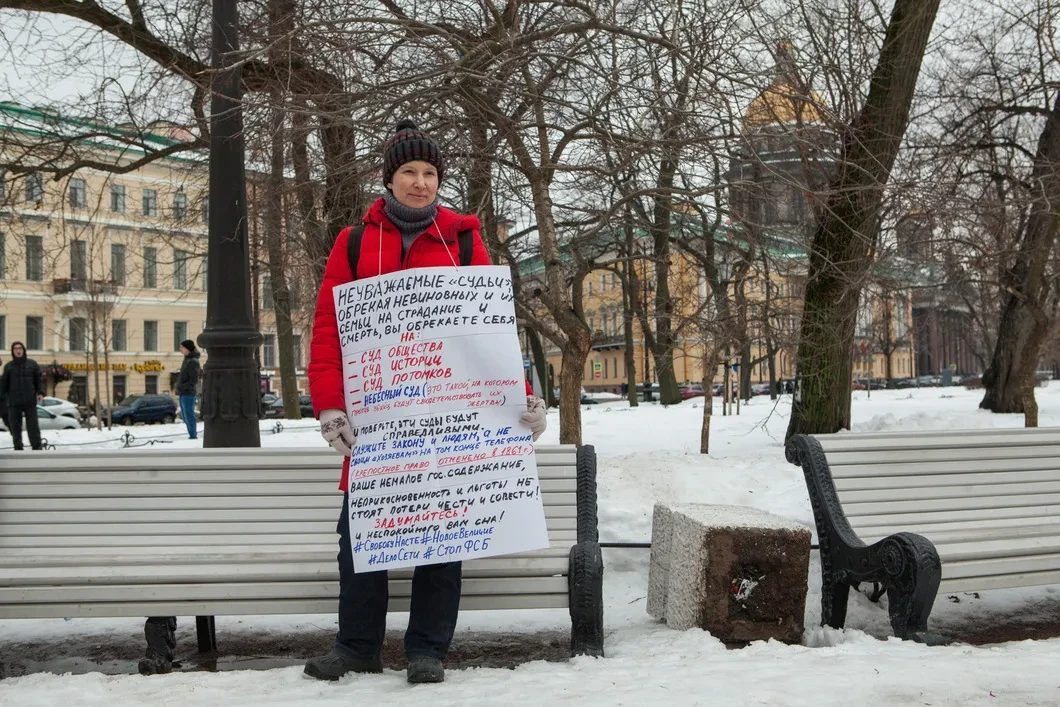 НЕУВАЖАЕМЫЕ «СУДЬИ»,
ОБРЕКАЯ НЕВИНОВНЫХ И ИХ
СЕМЬИ НА СТРАДАНИЕ И
СМЕРТЬ, ВЫ ОБРЕКАЕТЕ СЕБЯ
НА:
– СУД ОБЩЕСТВА
– СУД ИСТОРИИ
– СУД ПОТОМКОВ
– НЕБЕСНЫЙ СУД (ЭТО ТАКОЙ, НА КОТОРОМ
ПРОТИВ УБИЙЦ БУДУТ СВИДЕТЕЛЬСТВОВАТЬ ИХ ЖЕРТВЫ)
И ПОВЕРЬТЕ, ЭТИ СУДЫ БУДУТ
СПРАВЕДЛИВЫМИ.
СЛУЖИТЕ ЗАКОНУ И ЛЮДЯМ, А НЕ
СВОИМ «ХОЗЯЕВАМ» НА ТОМ КОНЦЕ ТЕЛЕФОНА
(КРЕПОСТНОЕ ПРАВО ОТМЕНЕНО В 1861 Г.)
ВАШЕ НЕМАЛОЕ ГОС. СОДЕРЖАНИЕ,
НЕПРИКОСНОВЕННОСТЬ И ЛЬГОТЫ НЕ
СТОЯТ ПОТЕРИ ЧЕСТИ И СОВЕСТИ!
ЗАДУМАЙТЕСЬ!
И НЕСПОКОЙНОГО ВАМ СНА!
#СВОБОДУНАСТЕ #НОВОЕВЕЛИЧИЕ
#ДЕЛОСЕТИ #СТОПФСБ